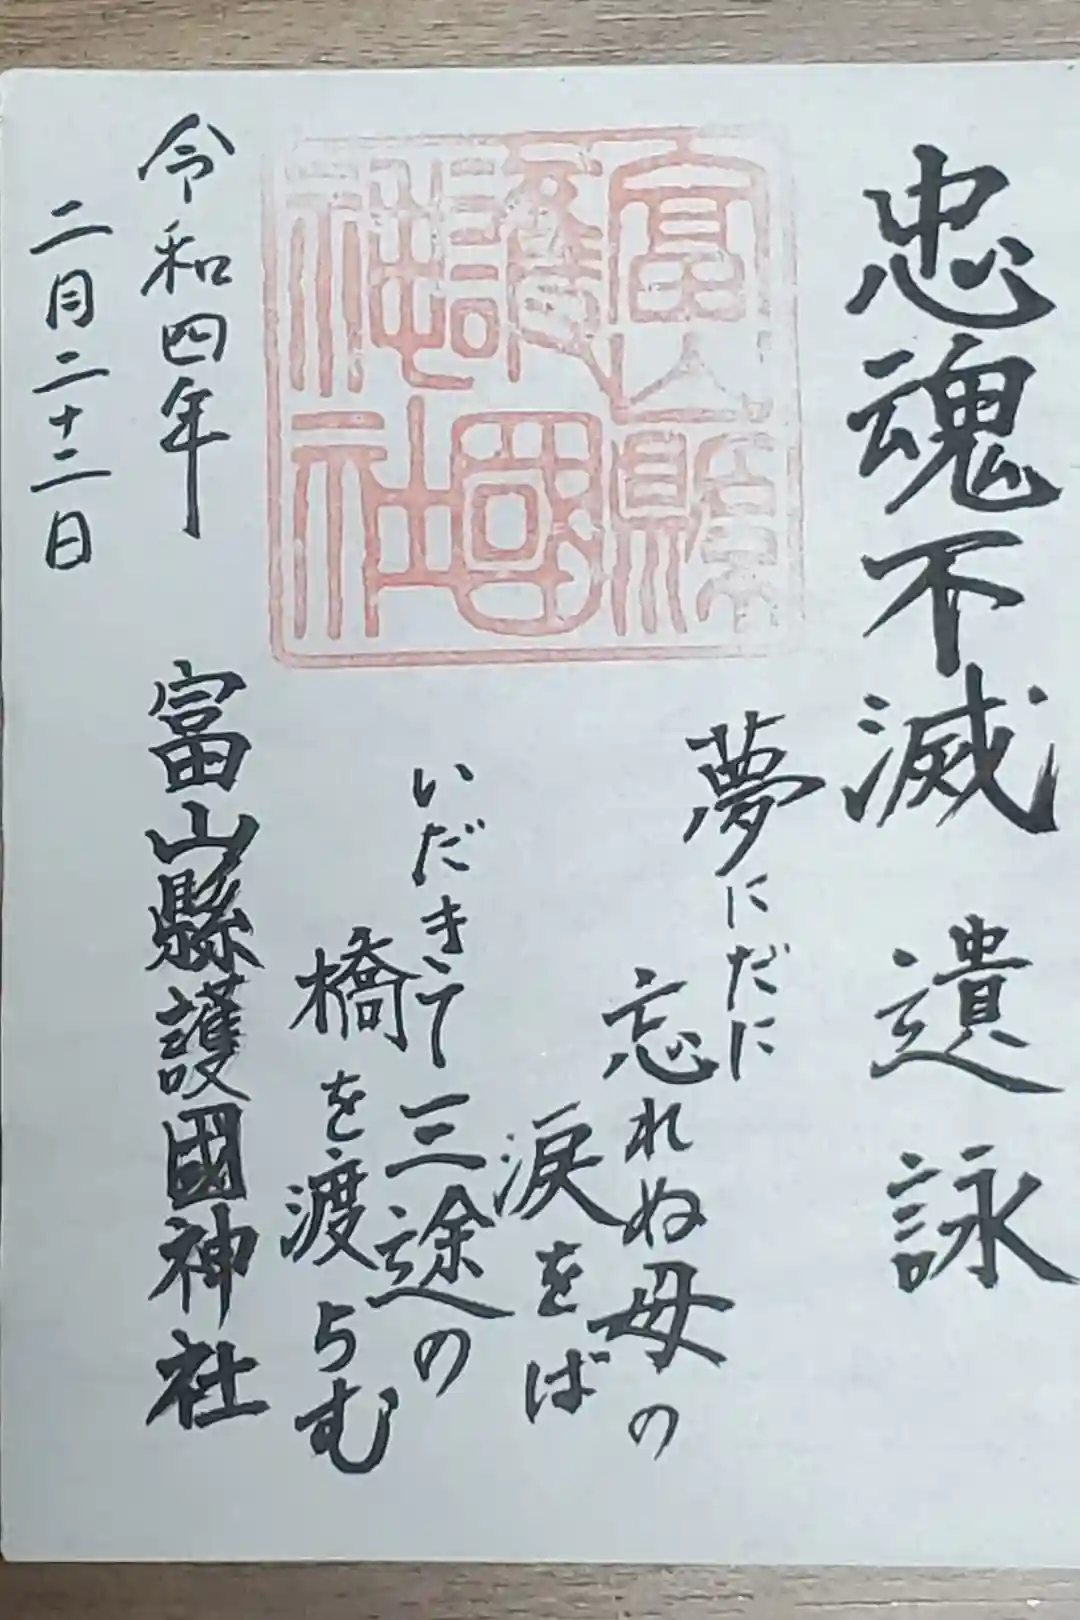 忠魂不滅 遺詠
夢にだに
忘れぬ母の
涙をば
いだきて三途の
橋を渡らむ
富山縣
護國
神社
令和四年
二月二十二日
富山縣護國神社